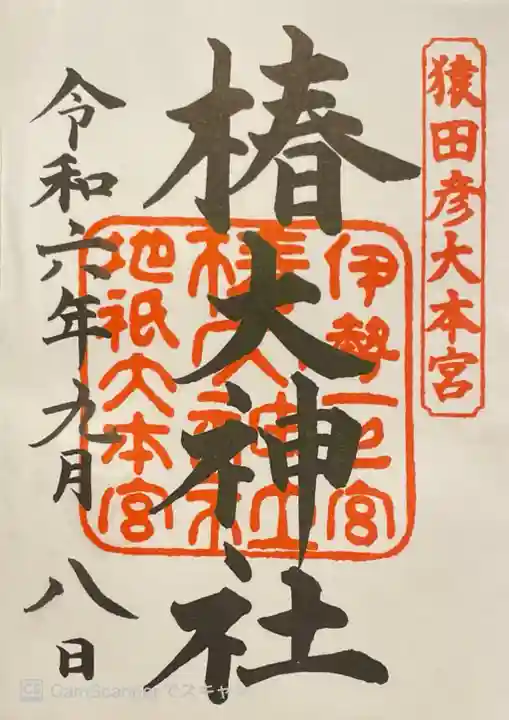 猿田彦大本宮
椿大神社
伊勢一之宮
椿大神社
地祇大本宮
令和六年九月八日
CamScannerでスキャン